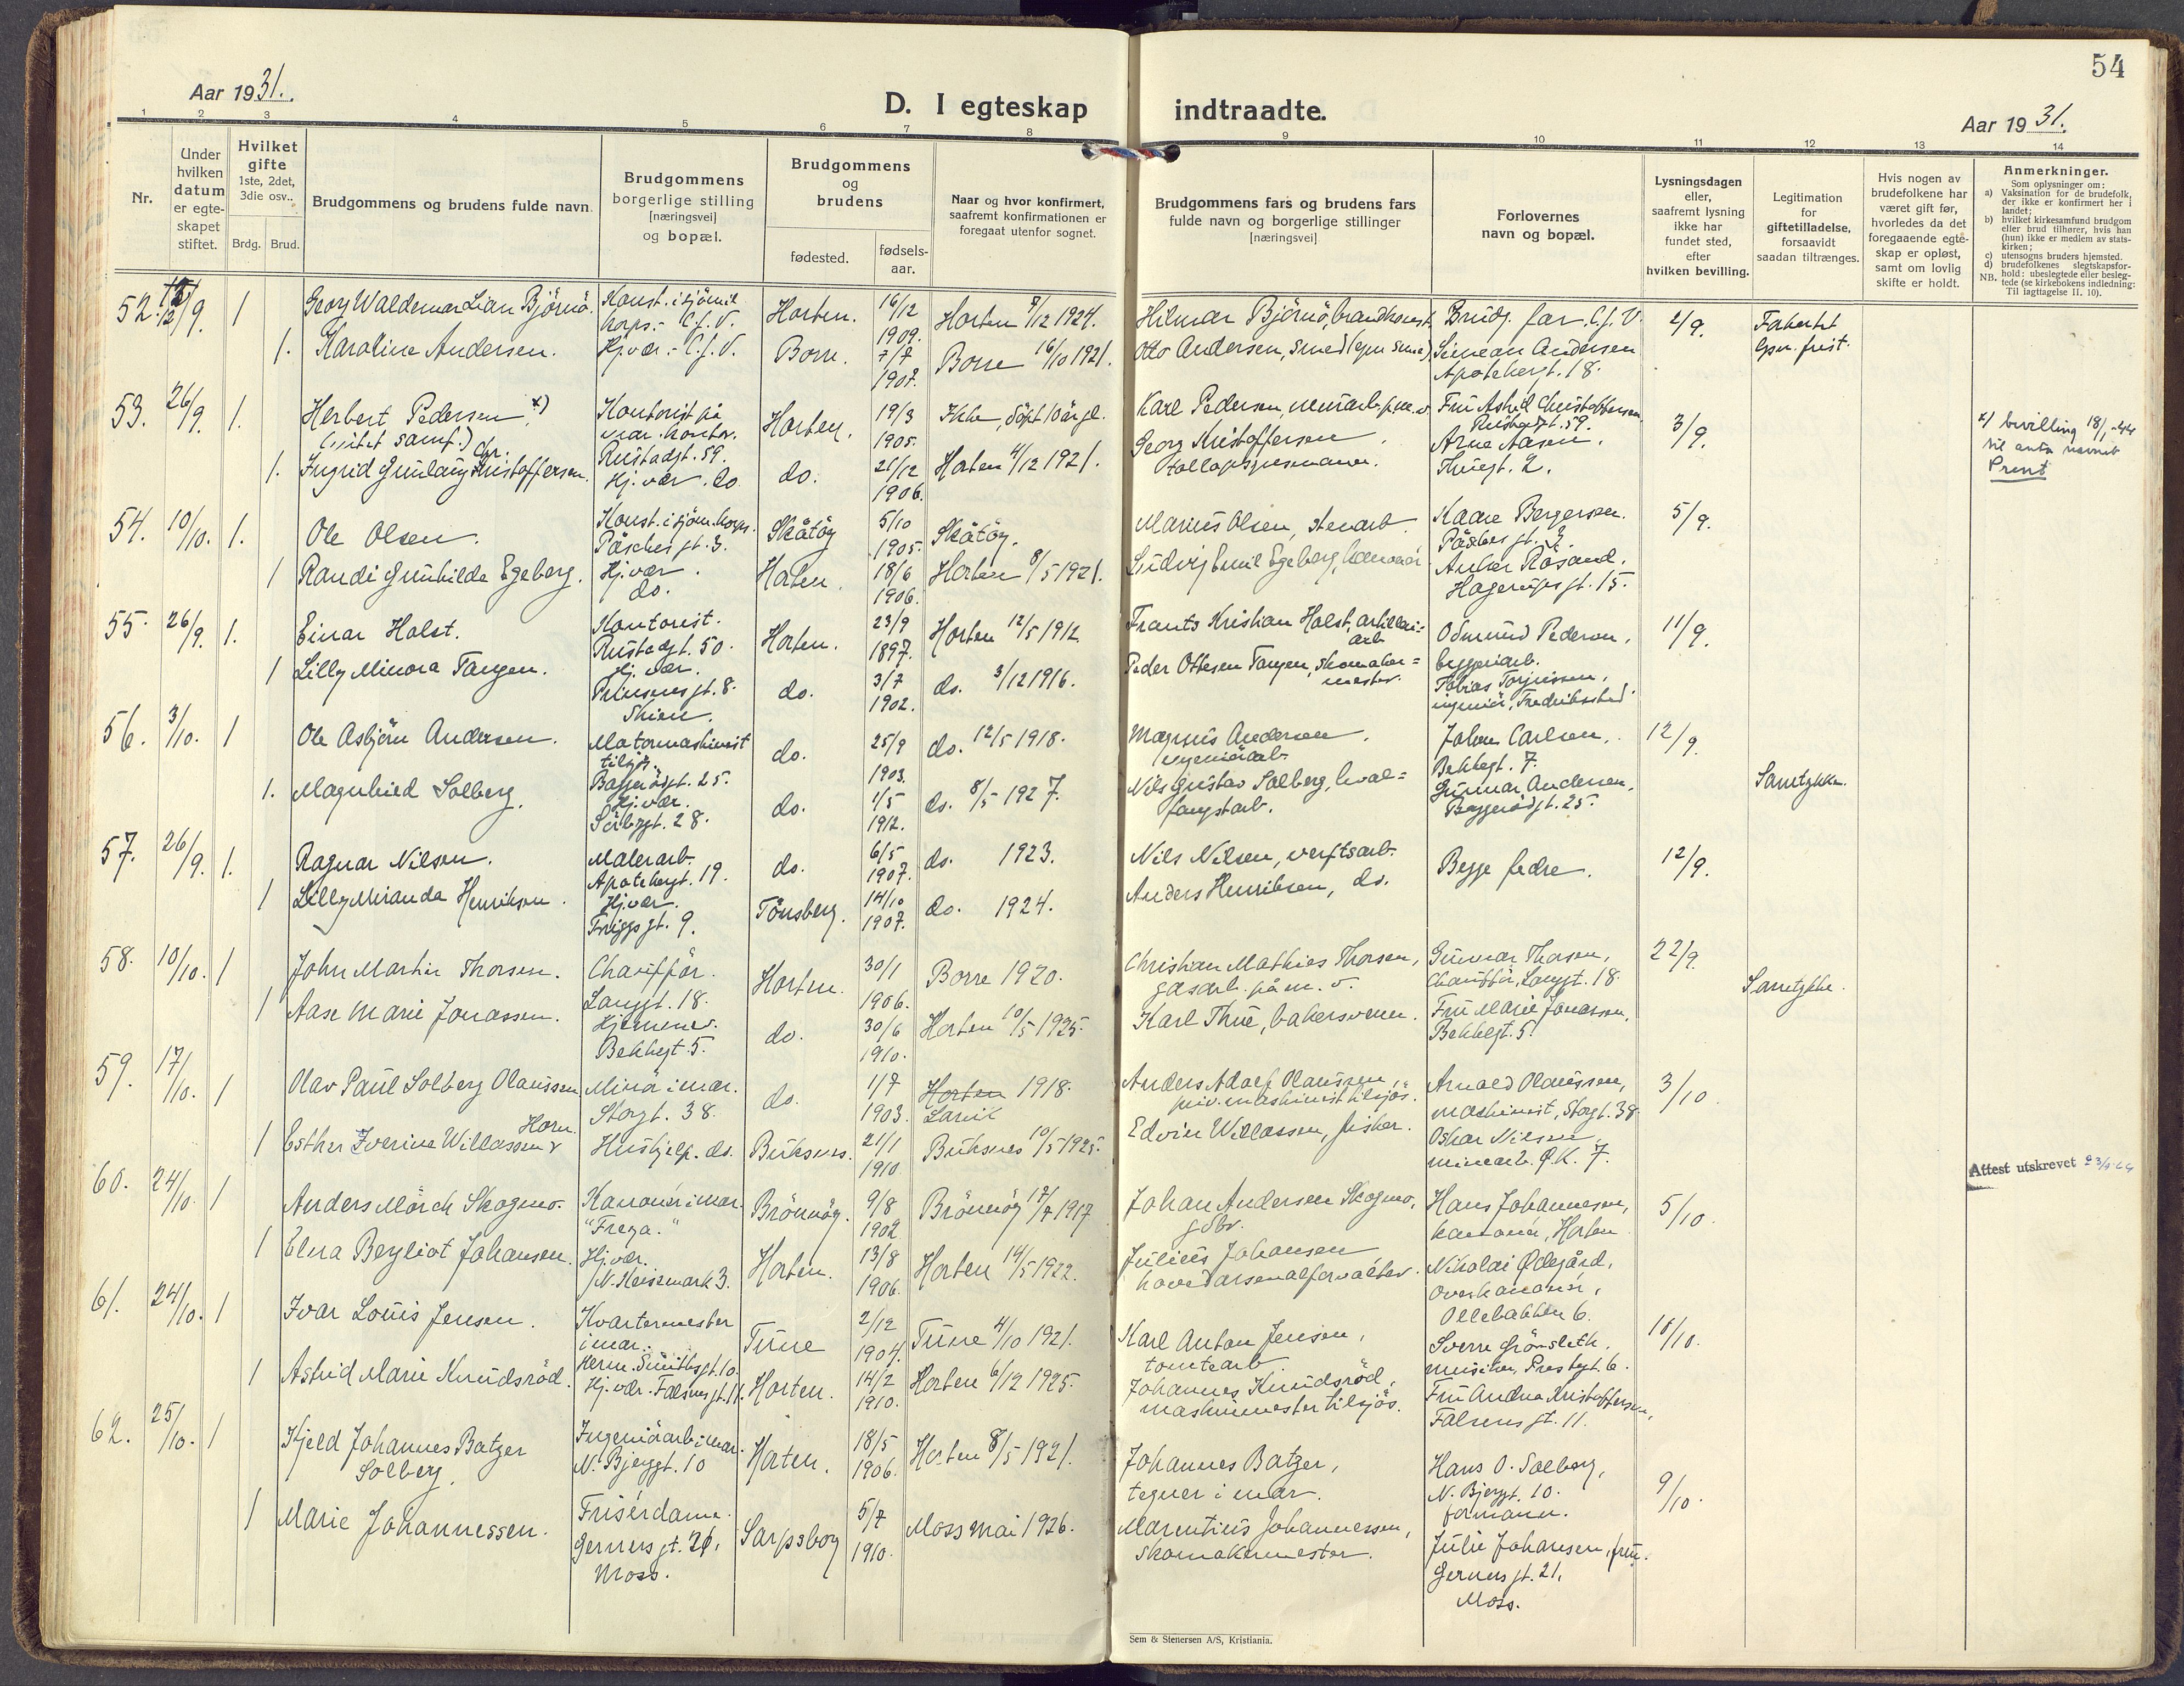 54
Aar 1931.
D. I egteskap indtraadte.
Aar 1931.
1 2 3 4 5 6 7 8 9 10 11 12 13 14
Nr.
Under hvilken datum er egte-skapet stiftet.
Hvilket gifte 1ste, 2det, 3die osv..
Brdg. Brud.
Brudgommens og brudens fulde navn.
Brudgommens borgerlige stilling [næringsvei] og bopæl.
Brudgommens og brudens
fødested.
fødsels-aar.
Naar og hvor konfirmert, saafremt konfirmationen er foregaat utenfor sognet.
Brudgommens fars og brudens fars fulde navn og borgerlige stillinger [næringsvei]
Forlovernes navn og bopæl.
Lysningsdagen eller, saafremt lysning ikke har fundet sted, efter hvilken bevilling.
Legitimation for giftetilladelse, forsaavidt saadan tiltrænges.
Hvis nogen av brudefolkene har været gift før, hvorledes da det foregaaende egte-skap er opløst, samt om lovlig skifte er holdt.
Anmerkninger.
Som oplysninger om:
a) Vaksination for de brudefolk, der ikke er konfirmert her i landet;
b) hvilket kirkesamfund brudgom eller brud tilhører, hvis han (hun) ikke er medlem av stats-kirken;
c) utensogns bruders hjemsted.
d) brudefolkenes slegtskapsfor-hold: ubeslegtede eller besleg-tede (se kirkebokens indledning:
NB. Til iagttagelse II. 10).
52. /9. 1 Georg Waldemar Lian Björnö. Horten. 16/12 1909. Horten 7/12 1924. Hilmar Björnö, Brudg. far. C.J.V. 2/9.
1. Karoline Andersen. Hj.vær. - C.J.V. Borre. 7/7 1907. Borre 16/10 1921. Otto Andersen, smed Simean Andersen Apotekergt. 18.
53. 26/9. 1. Herbert Pedersen x) Kontorist på mar. kontor. Rustadgt. 59. Horten. 19/3 1905. Ikke, döpt 10 år gl. Karl Pedersen, Fru Astrid Christoffersen, Rustadgt. 59. 3/9.
x) bevilling 18/1-44 til anta navnet Prent
1. Ingrid Gunlaug Kristoffersen. Hj. vær. do do. 21/12 1906. Horten 4/12 1921. Georg Kristoffersen Arne Aasen, Thuegt. 2.
54. 10/10. 1. Ole Olsen. Konst. i sjöm. korps. Päschesgt. 3. Skåtöy 5/10 1905. Skåtöy. Marius Olsen, stenarb. Kaare Bergersen. Päschesgt. 3. 5/9.
1 Randi Gunhilda Egeberg. Hj.vær. do. Horten. 18/6 1906. Horten 8/5 1921. Ludvig Emil Egeberg, kanonér Anker Råsand. 15.
55. 26/9. 1. Einar Holst. Kontorist. Rustadgt. 50. Horten. 23/9 1897. Horten 12/5 1912 Frants Kristian Holst, artilleri=arb Odmund Pedersen, byggeriarb. 11/9.
1 Lilly Minora Tangen. Hj. vær. Prinsensgt. 8. Skien. do. 3/7 1902. do. 3/12 1916. Peder Ottesen Tangen, skomaker=mester. Tobias Torjussen, ingeniör, Fredrikstad.
56. 3/10. 1 Ole Asbjörn Andersen. Motormaskinist tilsjös. Baggerödgt. 25. do. 25/9 1903. do. 12/5 1918. Magnus Andersen, ingeniörarb. Johan Carlsen, Bekkegt. 7. 12/9.
1. Magnhild Solberg. Hj.vær. Sörbygt. 28. do. 1/5 1912. do. 8/5 1927. Nils Gustav Solberg, hval=fangstarb. Gunnar Andersen, Baggerödgt. 25. Samtykke.
57. 26/9. 1. Ragnar Nilsen. Malerarb. Apotekergt. 19. do. 6/5 1907. do. 1923. Nils Nilsen, verftsarb. Begge fedre. 12/9.
1 Lilly Miranda Henriksen. Hj.vær. Friggsgt. 9. Tönsberg. 14/10 1907. do. 1924. Anders Henriksen, do.
58. 10/10. 1 John Martin Thorsen. Chaufför. Langgt. 18. Horten. 30/1 1906. Borre 1920. Christian Mathies Thorsen, gasarb. på m. v. Gunnar Thorsen, Chaufför, Langgt. 18. 22/9.
1 Aase Marie Jonassen. Hjemmev. Bekkegt. 5. do. 30/6 1910. Horten 10/5 1925. Karl Thue, bakersvenn. Fru Marie Jonassen, Bekkegt. 5. Samtykke.
59. 17/10. 1 Olav Paul Solberg Olaussen Minör i mar. Storgt. 38. do. 1/7 1903. Horten 1918. Larvik Anders Adolf Olaussen, priv. maskinist tilsjös. Arnold Olaussen, maskinist, Storgt. 38. 3/10
1 Esther Iverine Willassen Horn. Hushjelp. do. Buksnes. 21/1 1910. Buksnes 10/5 1925. Edvin Willassen, fisker. Oskar Nilsen minearb. Ø.K. 7.
Attest utskrevet
60. 24/10. 1 Anders Mörch Skogmo. Kanonér i mar. "Freya." Brönnöy. 9/8 1902 Brönnöy 17/7 1917 Johan Andersen Skogmo, gdbr. Hans Johannesen, kanonér, Horten 5/10.
1 Elna Bergliot Johansen. Hj.vær. N. Keisemark 3. Horten. 13/8 1906. Horten 14/5 1922. Julius Johansen hovedarsenalforvalter. Nikolai Ödegård, overkanonér, Ollebakken 6.
61. 24/10. 1 Ivar Louis Jensen. Kvartermester i mar. Herm. Smithsgt. 10. Tune 2/12 1904. Tune 4/10 1921. Karl Anton Jensen, tomtearb. Sverre Grönsleth, musiker, Prestegt. 6. 10/10.
1 Astrid Marie Knudsröd. Hj. vær. Falsensgt. 11. Horten. 14/2 1910. Horten 6/12 1925. Johannes Knudsröd, maskinmester tilsjös. Fru Andrea Kristoffersen, Falsensgt. 11.
62. 25/10. 1 Kjeld Johannes Batzer Solberg. Ingeniörarb. i mar. N. Bjerggt. 10 Horten. 18/5 1906. Horten 8/5 1921. Johannes Batzer, tegner i mar. Hans O. Solberg, N. Bjerggt. 10. formann. 9/10.
1 Marie Johannessen. Frisérdame. Gernersgt. 21, Moss. Sarpsborg 5/7 1910. Moss mai 1926. Marentius Johannessen, skomakermester. Julie Johansen, fru. Gernersgt. 21, Moss.
Sem & Stenersen A/S, Kristiania.